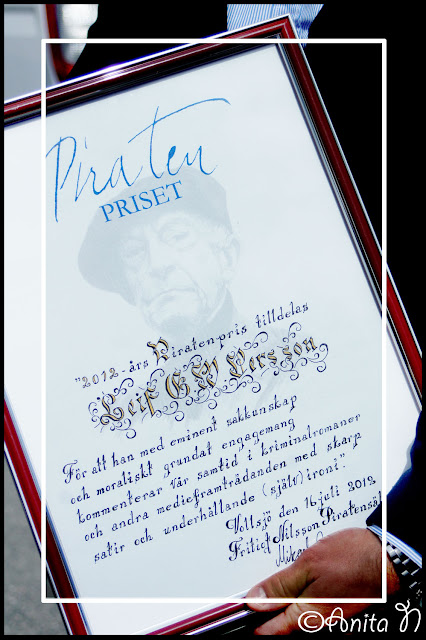 Piraten
PRISET
"2012-års Piraten-pris tilldelas
Leif G W Persson
För att han med eminent sakkunskap
och moraliskt grundat engagemang
kommenterar vår samtid i kriminalromaner
och andra medieframträdanden med skarp
satir och underhållande (själv)ironi".
Vollsjö den 16 juli 2012
Fritiof Nilsson Piratensäl
Mikael
©Anita N